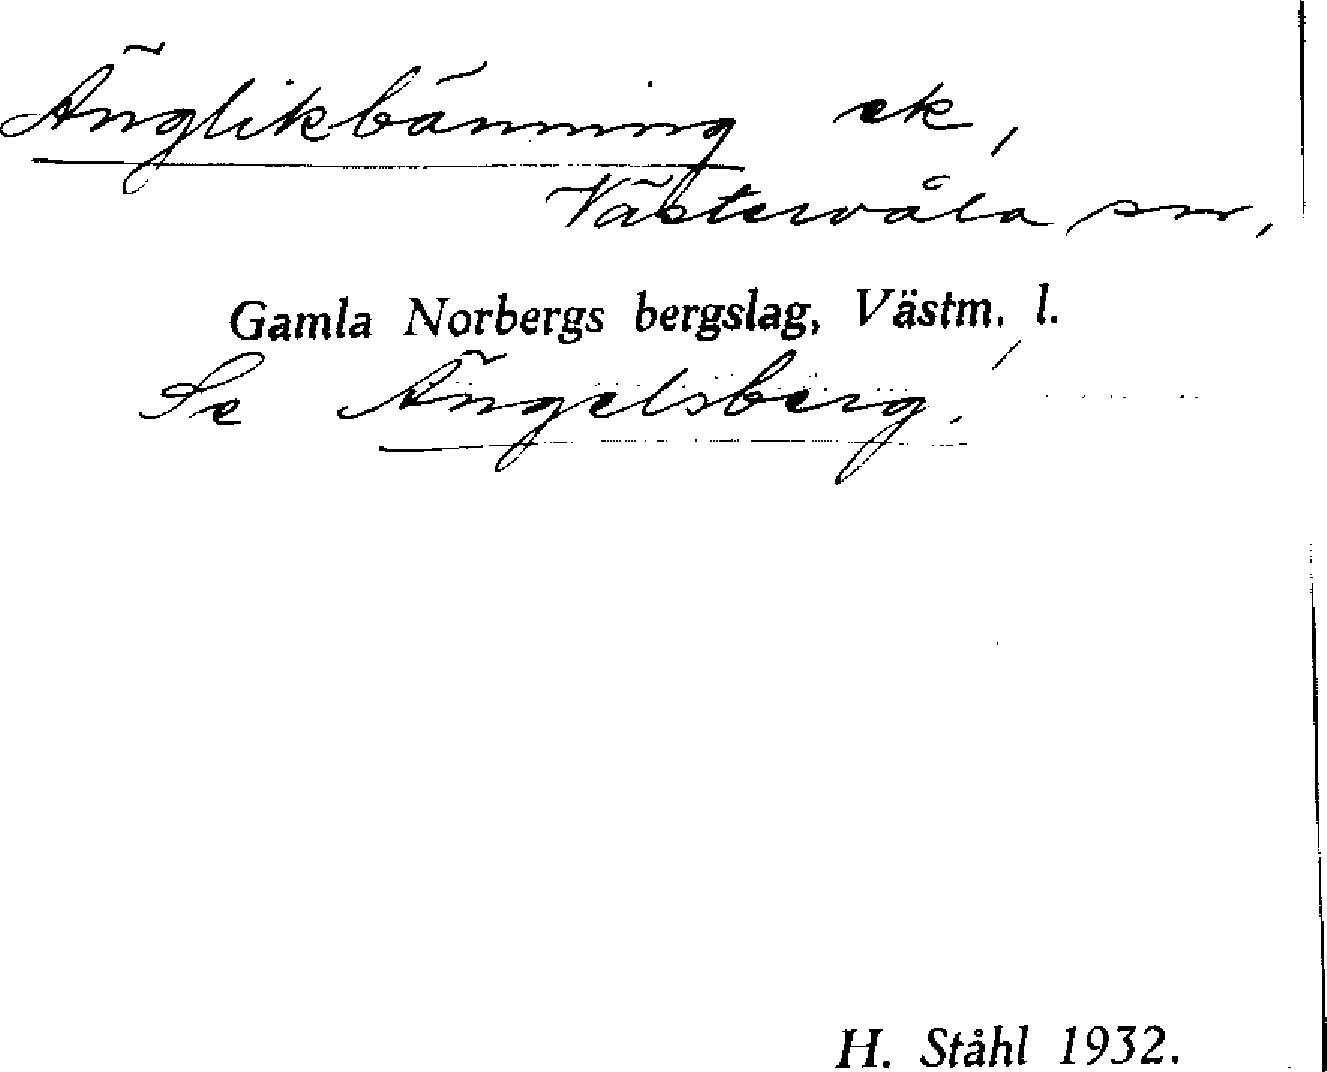 Änglikbänning ek,
Västervåla sn,
Gamla Norbergs bergslag, Västm. l.
Se Ängelsberg.
H. Ståhl 1932.